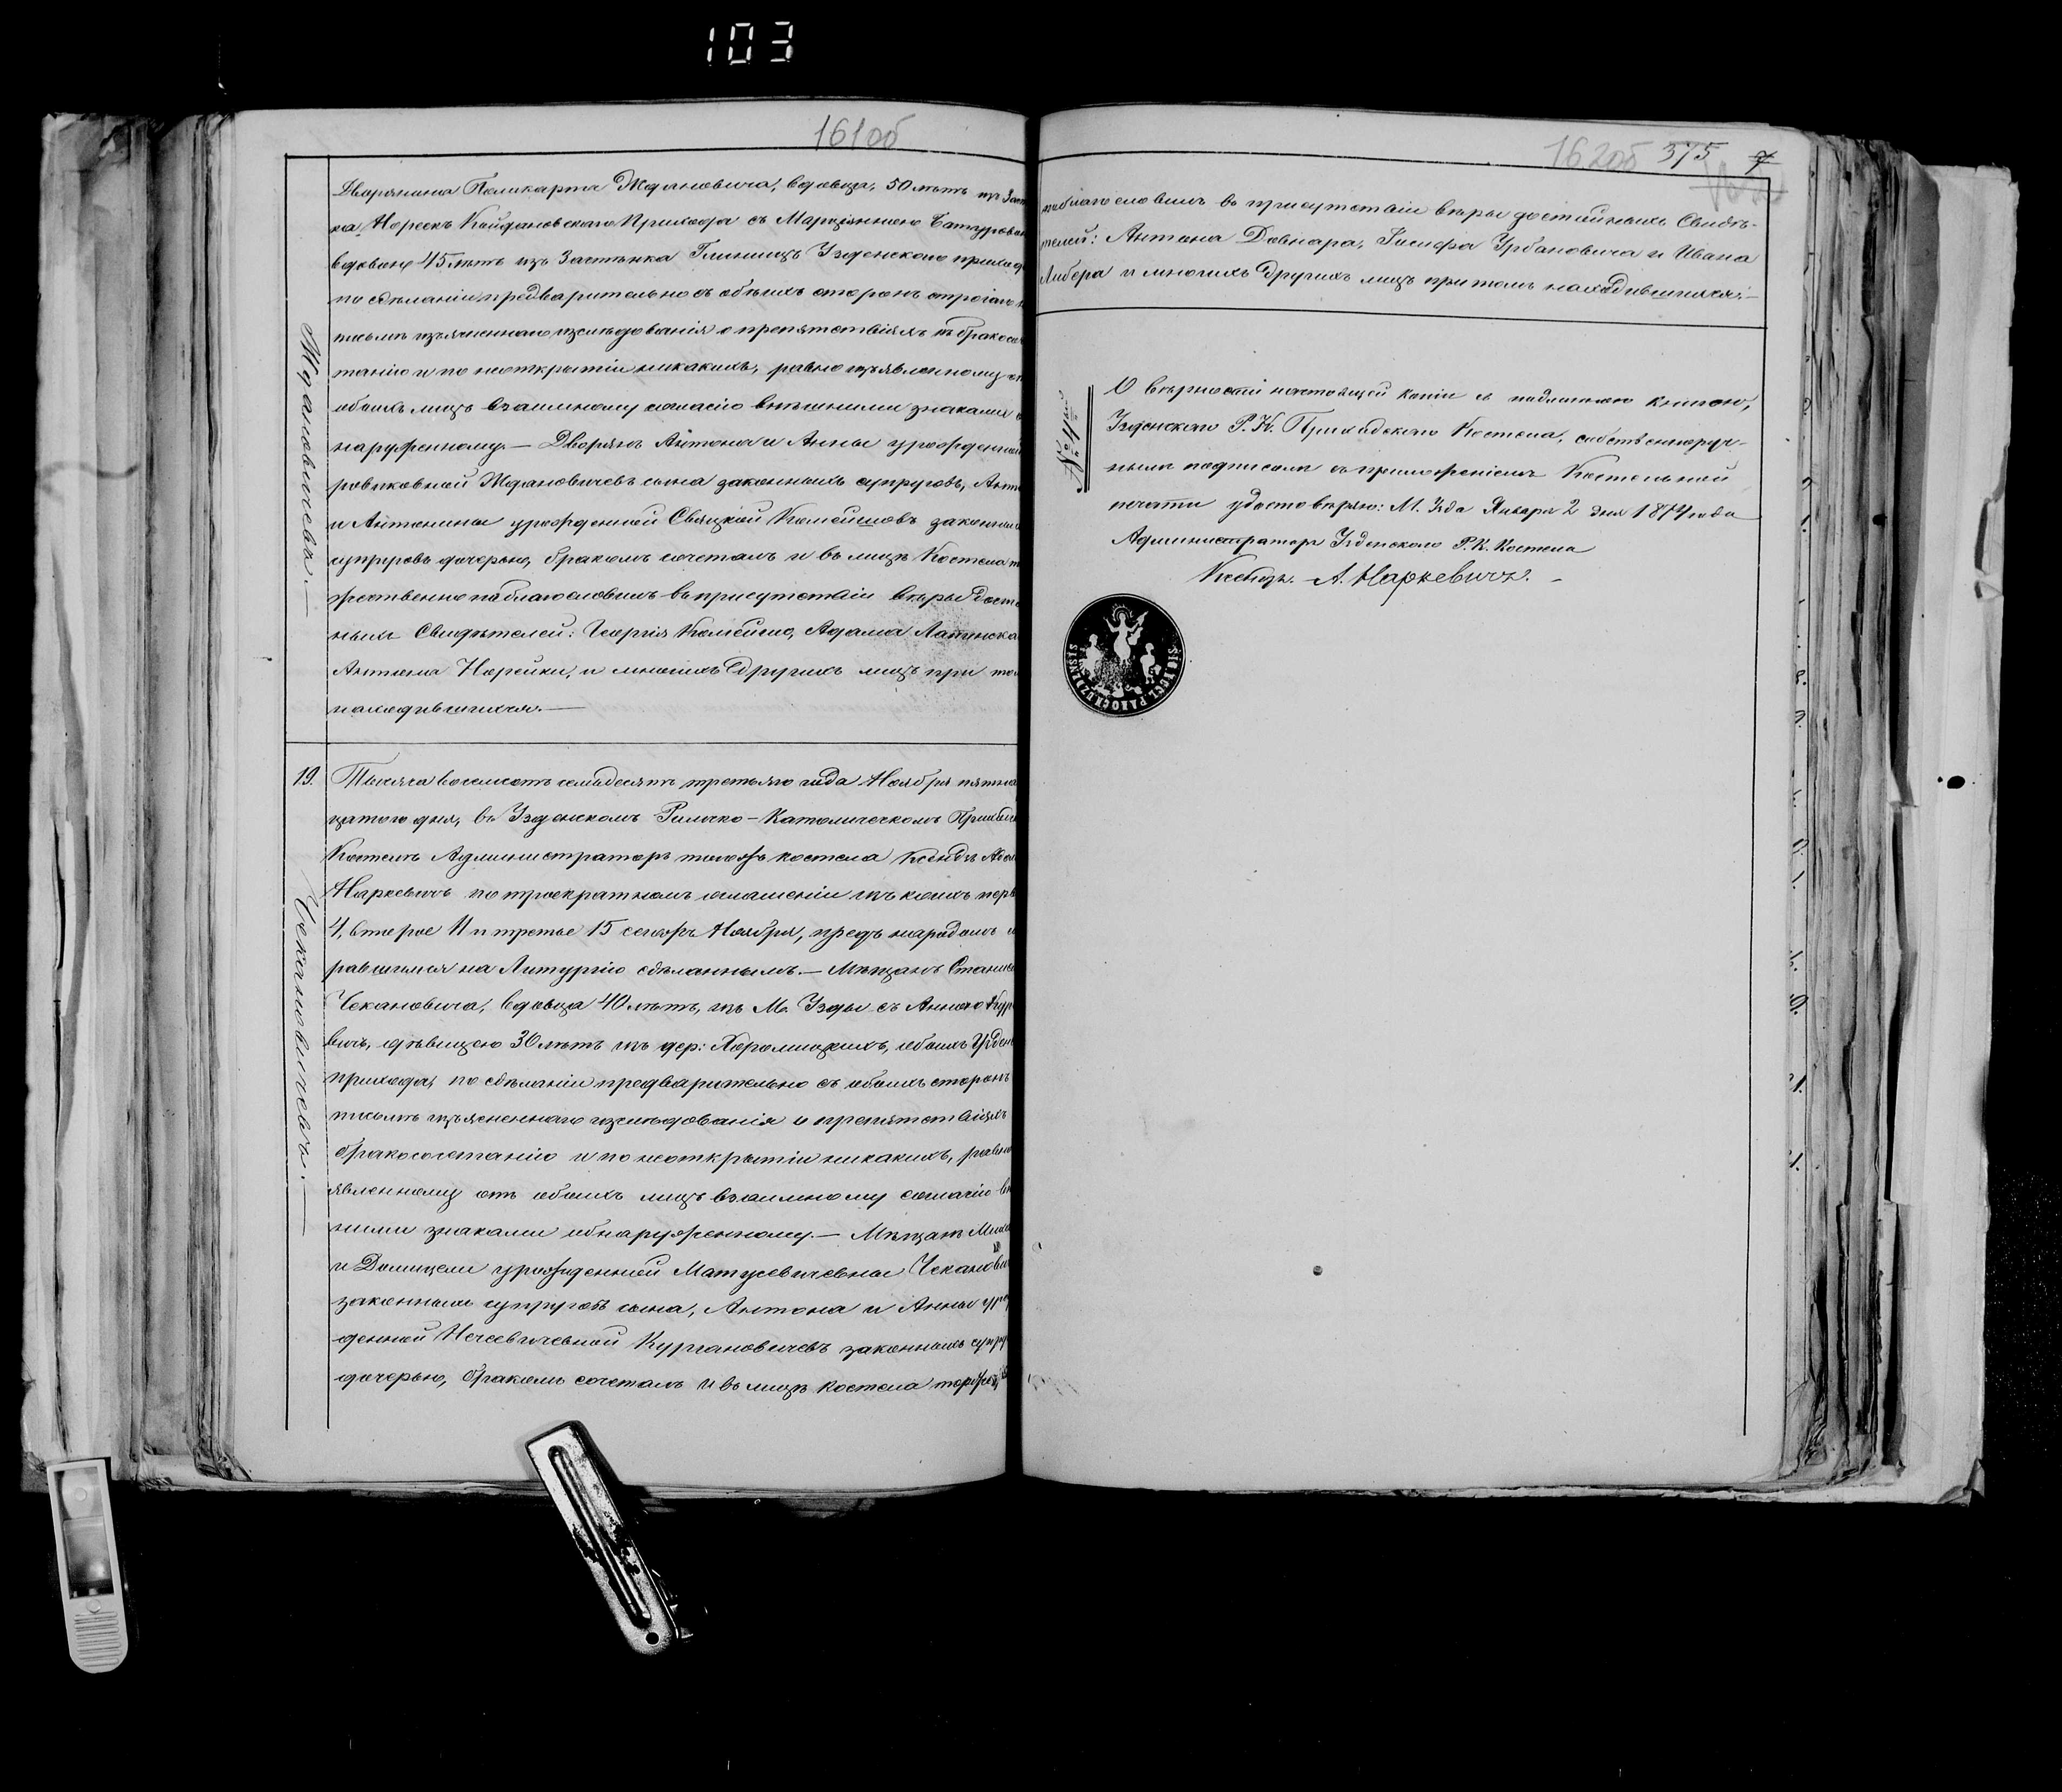 103
161об
Дворянина Поликарпа Ждановича, вдовца, 50 лѣтъ изъ Заст
ка Нореекъ Койдановскаго Прихода съ Марцянною Батурова
вдовою 45 лѣтъ изъ Застѣнка Глинищъ Узденскаго приход
по сдѣланіи предварительно съ обѣихъ сторонъ строгаго
письмѣ изъясненнаго изслѣдованія о препятствіяхъ къ бракосоч
танію и по неоткрытіи никакихъ, равно изъявленному
обоихъ лицъ взаимному согласію внѣшними знаками о
наруженному. — Дворянъ Антона и Анны урожденной
ровиковной Ждановичевъ сына законныхъ супруговъ, Анто
и Антонины урожденной Свяцкой Комейшовъ законных
супруговъ дочерью, бракомъ сочеталъ и въ лицѣ Костела т
жественно поблагословилъ въ присутствіи вѣры дост
ныхъ Свидѣтелей: Георгія Комейшо, Адама Лапинска
Антона Норейки, и многихъ другихъ лицъ при то
находившихся. —
Ждановичевъ. —
19.
Тысяча восемсотъ семьдесятъ третьяго года Ноября пятна
цатого дня, въ Узденскомъ Римско-Католическомъ Приход
Костелѣ Администраторъ того жъ костела Ксендзъ Ада
Наркевичъ по троекратномъ оглашеніи изъ коихъ перв
4, второе 11 и третье 15 сегожъ Ноября, предъ народомъ
равшимся на Литургію сдѣланнымъ. — Мѣщанъ Станис
Чекановича, вдовца 40 лѣтъ, изъ М. Узды съ Анною Кур
вичъ, дѣвицею 30 лѣтъ изъ дер: обоихъ Узден
прихода, по сдѣланіи предварительно съ обоихъ сторонъ
письмѣ изъясненнаго изслѣдованія о препятствіяхъ
бракосочетанію и по неоткрытіи никакихъ, равно
явленному отъ обоихъ лицъ взаимному согласію вн
ними знаками обнаруженному. — Мѣщанъ Миха
и Домицели урожденной Матусевичевны Чеканови
законныхъ супруговъ сына, Антона и Анны уро
денной Нечевичевной Кургановичевъ законныхъ супру
дочерью, бракомъ сочеталъ и въ лицѣ костела торжест
Чекановичевъ. —
162об 375 7
поблагословилъ въ присутствіи вѣры достойныхъ Свидѣ-
телей: Антона Довнара, Іосифа Урбановича и Ивана
Либера и многихъ другихъ лицъ притомъ находившихся. —
О вѣрности настоящей копіи съ подлинною книгою,
Узденскаго Р. К. Приходскаго Костела, собственноруч-
нымъ подписомъ съ приложеніемъ Костельной
печати удостовѣряю: М. Узда Января 2 дня 1874 года
Администраторъ Узденскаго Р. К. Костела
Ксендзъ. А. Наркевичъ. —